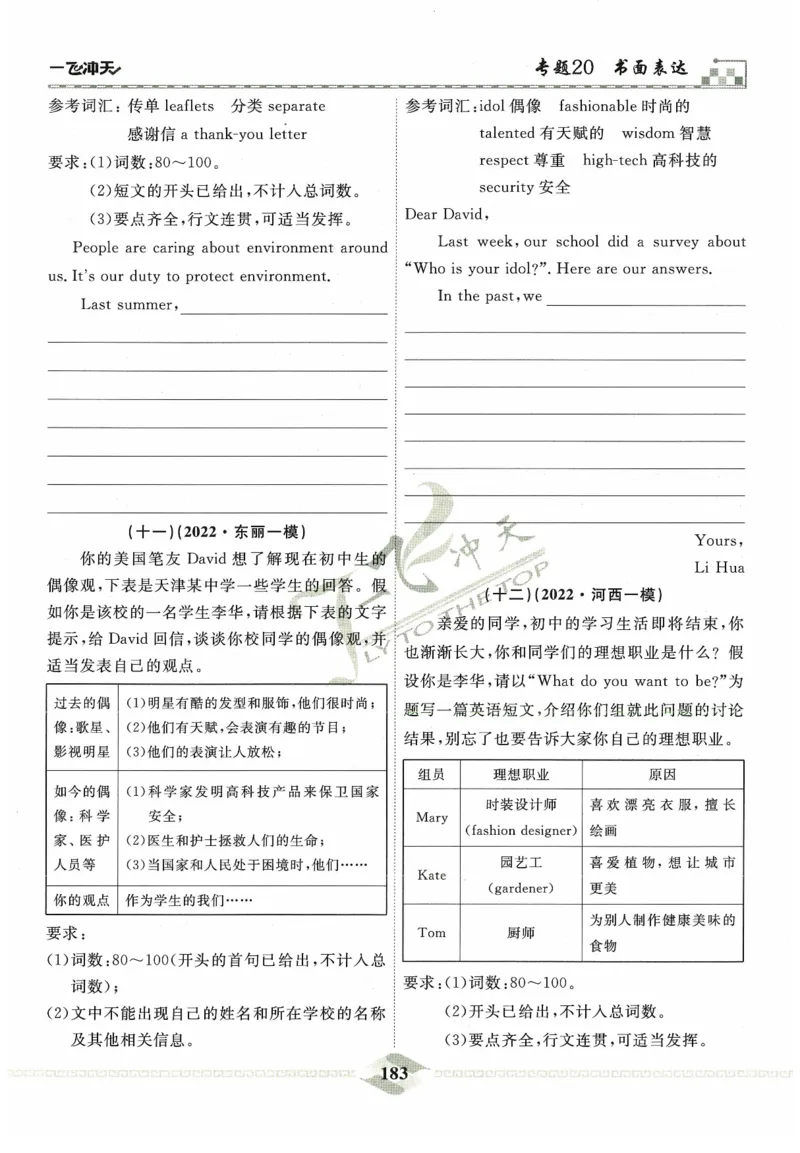 一飞冲天
专题20 书面表达
参考词汇：传单 leaflets 分类 separate
感谢信 a thank-you letter
要求:(1)词数:80～100。
(2)短文的开头已给出,不计入总词数。
(3)要点齐全,行文连贯,可适当发挥。
People are caring about environment around
us. It's our duty to protect environment.
Last summer,
(十一)(2022·东丽一模)
你的美国笔友 David 想了解现在初中生的
偶像观,下表是天津某中学一些学生的回答。假
如你是该校的一名学生李华,请根据下表的文字
提示,给 David 回信,谈谈你校同学的偶像观,并
适当发表自己的观点。
过去的偶
像:歌星、
影视明星
(1)明星有酷的发型和服饰,他们很时尚;
(2)他们有天赋,会表演有趣的节目;
(3)他们的表演让人放松;
如今的偶
像：科学
家、医护
人员等
(1)科学家发明高科技产品来保卫国家
安全;
(2)医生和护士拯救人们的生命;
(3)当国家和人民处于困境时,他们……
你的观点
作为学生的我们……
要求:
(1)词数:80～100(开头的首句已给出,不计入总
词数);
(2)文中不能出现自己的姓名和所在学校的名称
及其他相关信息。
参考词汇:idol 偶像 fashionable 时尚的
talented 有天赋的 wisdom 智慧
respect 尊重 high-tech 高科技的
security 安全
Dear David,
Last week, our school did a survey about
“Who is your idol?”. Here are our answers.
In the past, we
Yours,
Li Hua
(十二)(2022·河西一模)
亲爱的同学,初中的学习生活即将结束,你
也渐渐长大,你和同学们的理想职业是什么？假
设你是李华,请以“What do you want to be?”为
题写一篇英语短文,介绍你们组就此问题的讨论
结果,别忘了也要告诉大家你自己的理想职业。
组员 理想职业 原因
Mary
时装设计师
(fashion designer)
喜欢漂亮衣服,擅长
绘画
Kate
园艺工
(gardener)
喜爱植物,想让城市
更美
Tom
厨师
为别人制作健康美味的
食物
要求:(1)词数:80～100。
(2)开头已给出,不计入总词数。
(3)要点齐全,行文连贯,可适当发挥。
飞冲天
FLY TO THE TOP
183